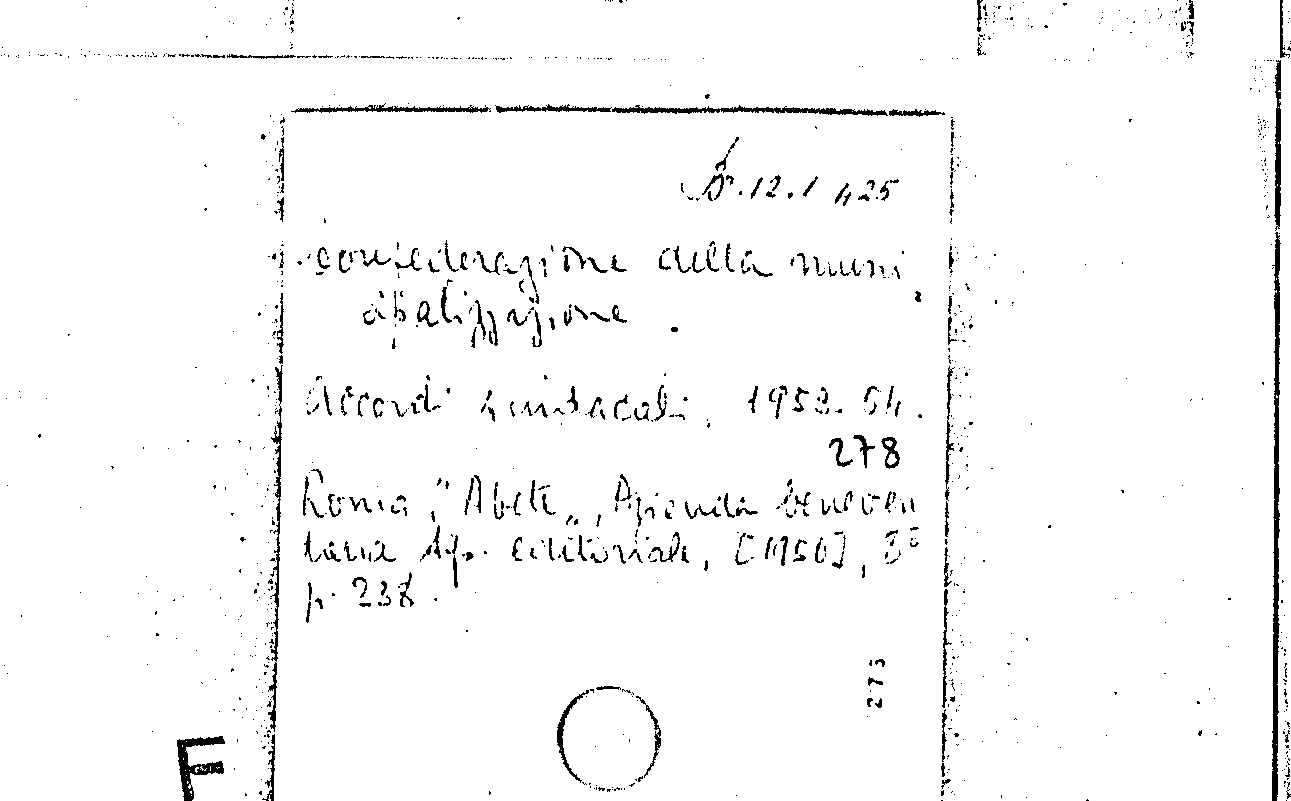 B.12.1 425
Confederazione della muni
cipalizzazione.
Accordi sindacali, 1953-54.
278
Roma, "Abete", Azienda beneven
tana tip. editoriale, [195], 8°
p. 238.
275
F